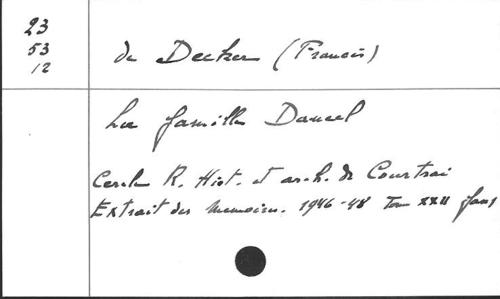 23
53
12
de Decker (Francis)
La famille Daneel
Cercle R. Hist. et arch. de Courtrai
Extrait des Memoires. 1946-48 Tom XXII